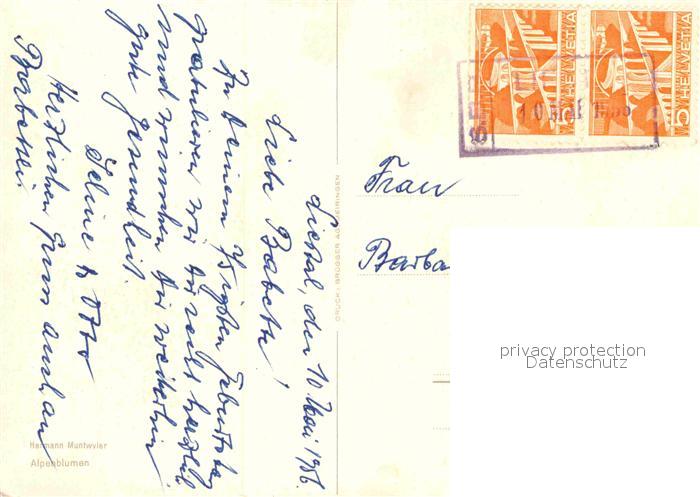 Liestal, den 10. Mai 1956.
Liebe Babeth!
Zu Deinem Geburtstag
gratulieren wir Dir recht herzlich
und wünschen Dir weiterhin
gute Gesundheit.
Seline & Otto
Herzlichen Gruss auch an
Barbettli
Hermann Muntwyler
Alpenblumen
DRUCK: BRÜGGER AG MEIRINGEN
HELVETIA
5
HELVETIA
5
10 MAI
Frau
Barba
privacy protection
Datenschutz